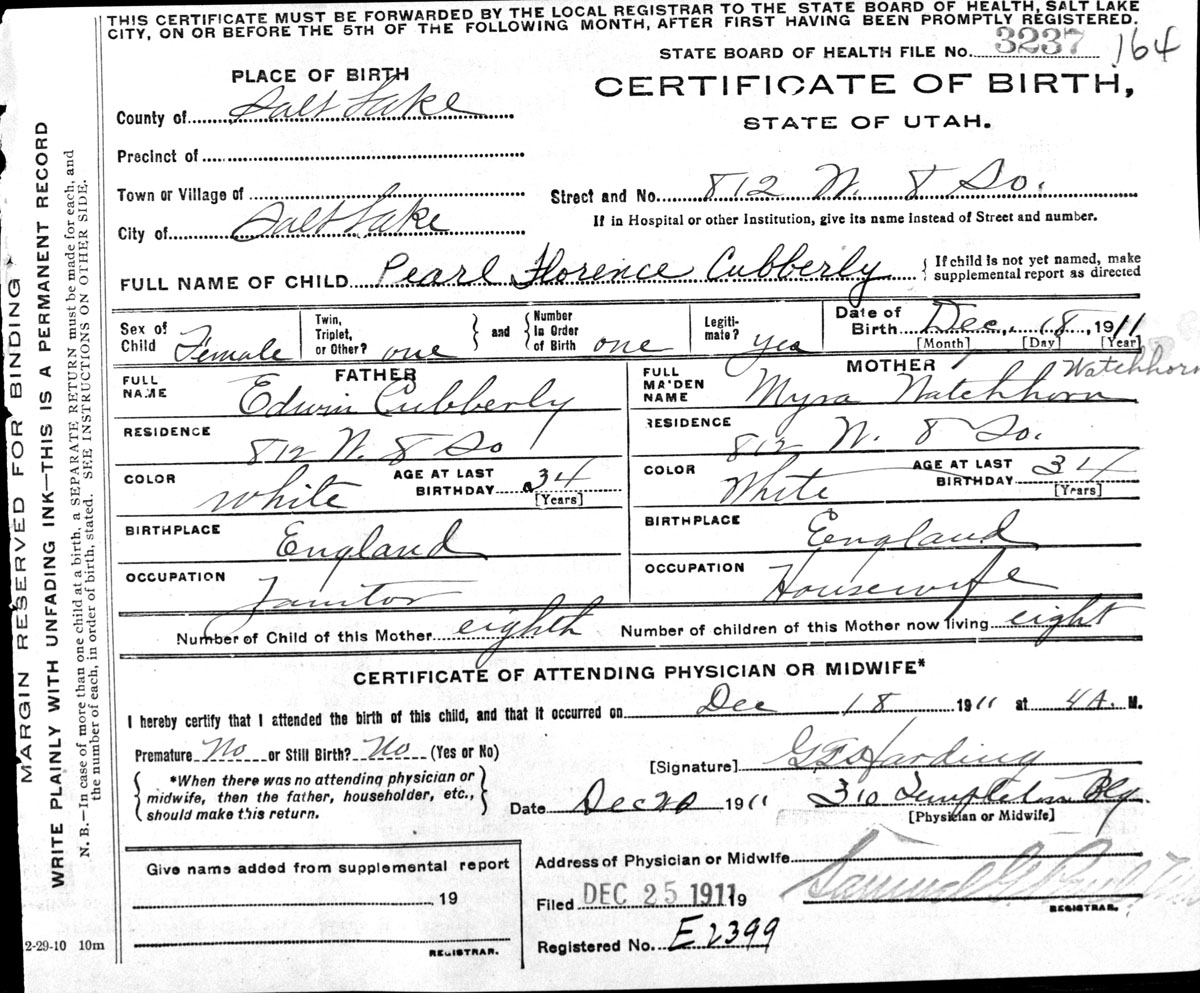 THIS CERTIFICATE MUST BE FORWARDED BY THE LOCAL REGISTRAR TO THE STATE BOARD OF HEALTH, SALT LAKE
CITY, ON OR BEFORE THE 5TH OF THE FOLLOWING MONTH, AFTER FIRST HAVING BEEN PROMPTLY REGISTERED.
STATE BOARD OF HEALTH FILE No. 3237 164
PLACE OF BIRTH
CERTIFICATE OF BIRTH,
STATE OF UTAH.
County of Salt Lake
Precinct of
Town or Village of
Street and No. 812 W. 8 So.
City of Salt Lake
If in Hospital or other Institution, give its name instead of Street and number.
FULL NAME OF CHILD Pearl Florence Cubberly { If child is not yet named, make
supplemental report as directed
Sex of Child Female
Twin, Triplet, or Other? one } and { Number In Order of Birth one
Legiti-mate? yes
Date of Birth Dec. 18, 1911
[Month] [Day] [Year]
FATHER
FULL NAME Edwin Cubberly
RESIDENCE 812 W. 8 So
COLOR White AGE AT LAST BIRTHDAY 34 [Years]
BIRTHPLACE England
OCCUPATION Janitor
MOTHER Watchhorn
FULL MAIDEN NAME Myra Watchhorn
RESIDENCE 812 W. 8 So.
COLOR White AGE AT LAST BIRTHDAY 34 [Years]
BIRTHPLACE England
OCCUPATION Housewife
Number of Child of this Mother eighth Number of children of this Mother now living eight
CERTIFICATE OF ATTENDING PHYSICIAN OR MIDWIFE*
I hereby certify that I attended the birth of this child, and that it occurred on Dec 18 1911 at 4 A. M.
Premature No or Still Birth? No (Yes or No)
[Signature] Harding
{ *When there was no attending physician or
midwife, then the father, householder, etc.,
should make this return. }
Date Dec 20 1911 310 Templeton Blg.
[Physician or Midwife]
Give name added from supplemental report
19
REGISTRAR.
Address of Physician or Midwife
Filed DEC 25 1911 19
Samuel G. Paul
REGISTRAR.
Registered No. E2399
2-29-10 10m
MARGIN RESERVED FOR BINDING
WRITE PLAINLY WITH UNFADING INK—THIS IS A PERMANENT RECORD
N. B.—In case of more than one child at a birth, a SEPARATE RETURN must be made for each, and
the number of each, in order of birth, stated. SEE INSTRUCTIONS ON OTHER SIDE.